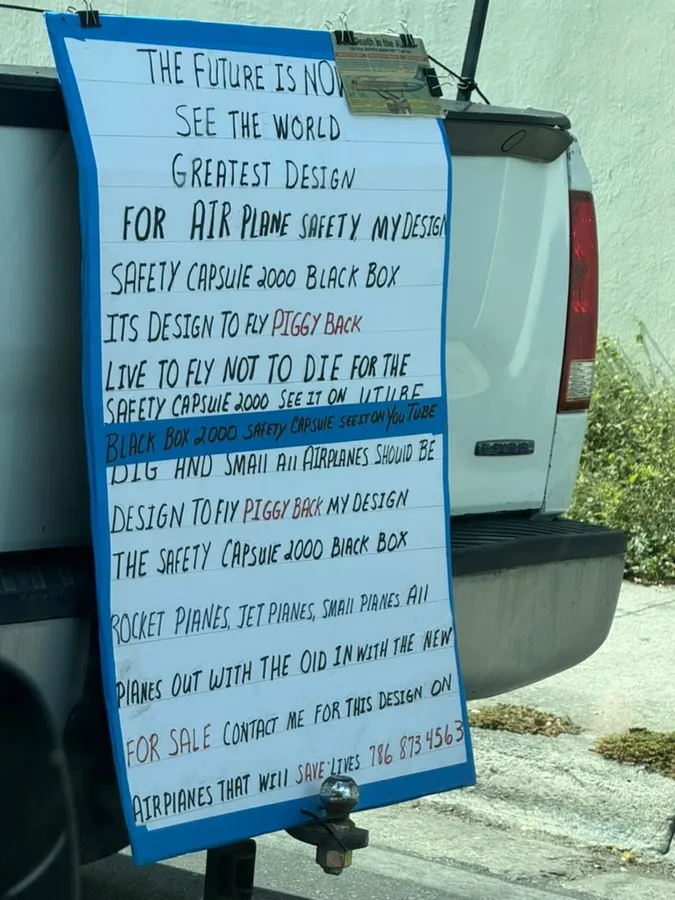 THE FUTURE IS NOW
Death in the A
SEE THE WORLD
GREATEST DESIGN
FOR AIR PLANE SAFETY, MY DESIGN
SAFETY CAPSULE 2000 BLACK BOX
ITS DESIGN TO FLY PIGGY BACK
LIVE TO FLY NOT TO DIE FOR THE
SAFETY CAPSULE 2000 SEE IT ON UTUBE
BLACK BOX 2000 SAFETY CAPSULE SEE IT ON YOUTUBE
BIG AND SMALL All AIRPLANES SHOULD BE
DESIGN TO FLY PIGGY BACK MY DESIGN
THE SAFETY CAPSULE 2000 BLACK BOX
ROCKET PLANES, JET PLANES, SMALL PLANES All
PLANES OUT WITH THE OLD IN WITH THE NEW
FOR SALE CONTACT ME FOR THIS DESIGN ON
AIRPLANES THAT WILL SAVE LIVES 786 873 4563